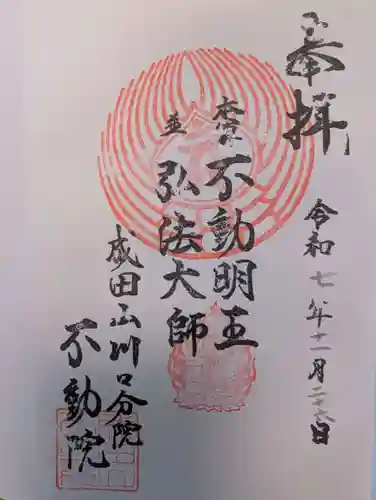 奉拝
令和七年十二月二十六日
本尊
不動明王
並
弘法大師
成田山川口分院
不動院